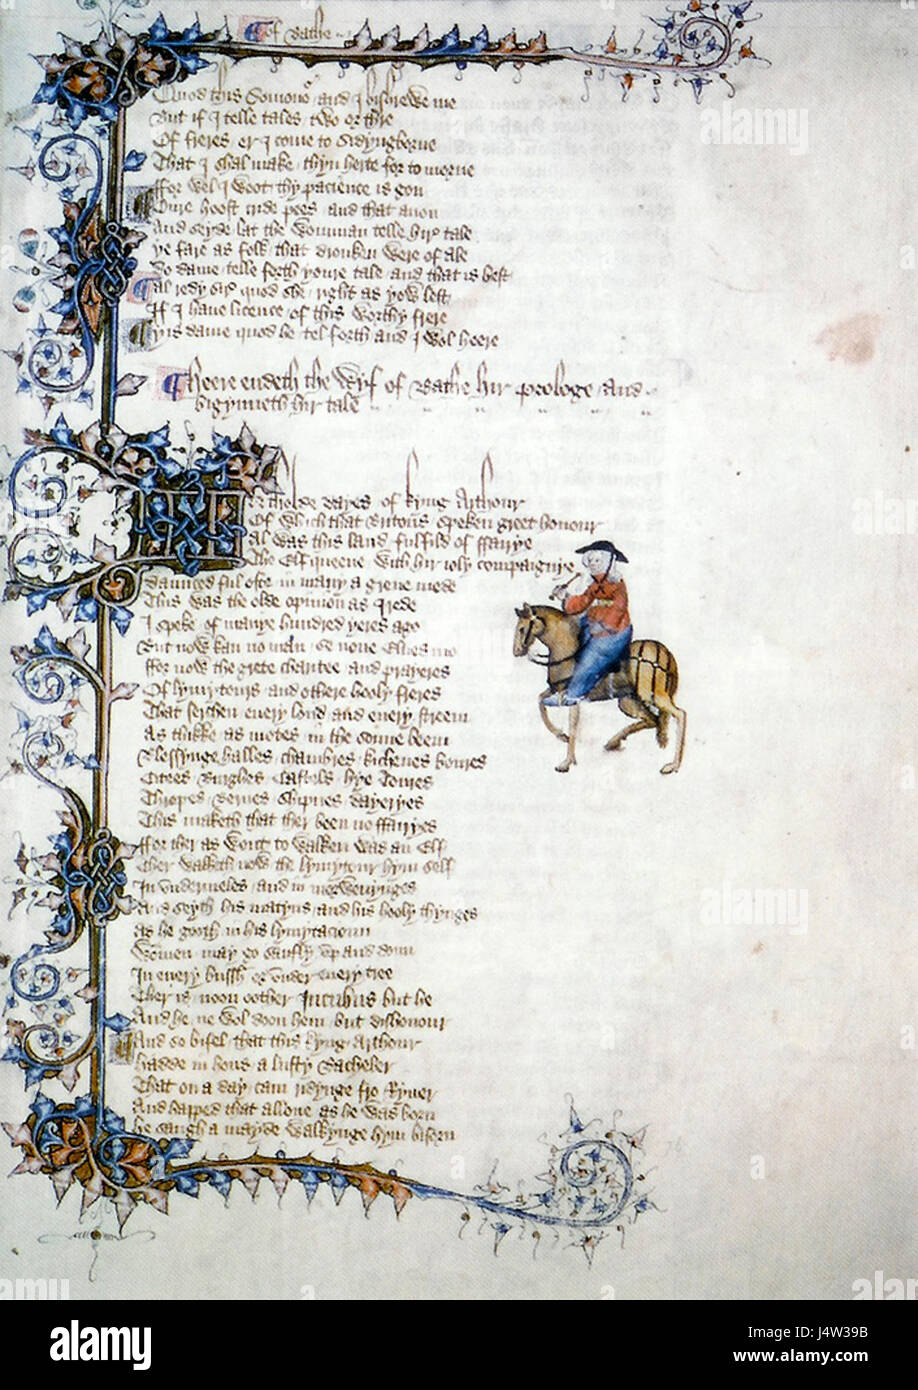 of Bathe
Quod this Somono r and I bishrewe me
But if I telle tales two or thre
Of freres er I come to Sidyngborne
That I shal make thyn herte for to morne
ffor wel I woot thy pacience is gon
Oure hoost cride pees and that anon
And seyde lat the womman telle hir tale
ye fare as folk that dronken were of ale
Do dame telle forth youre tale and that is best
Al redy sir quod she right as yow lest
If I haue licence of this worthy frere
yis dame quod he tel forth and I wol heere
Heere endeth the Wyf of Bathe hir prologe and
bigynneth hir tale
In tholde dayes of kyng Arthour
Of which that Britons speken greet honour
Al was this land fulfild of ffairye
The Elf queene with hir ioly compaignye
daunced ful ofte in many a grene mede
This was the olde opinion as I rede
I speke of manye hundred yeres ago
But now kan no man se none Elues mo
ffor now the grete charitee and prayeres
Of lymytours and othere hooly freres
That serchen euery lond and euery streem
As thikke as motes in the sonne beem
Blessynge halles chambres kichenes boures
Citees Burghes Castels hye Toures
Thropes Bernes Shipnes dayeryes
This maketh that ther been no ffairyes
ffor ther as wont to walken was an Elf
Ther walketh now the lymytour hym self
In vndermeles and in morwenynges
And seyth his matyns and his hooly thynges
As he gooth in his lymytacioun
Wommen may go saufly vp and doun
In euery bussh or vnder euery tree
Ther is noon oother Incubus but he
And he ne wol doon hem but dishonour
And so bifel that this kyng Arthour
hadde in hous a lusty Bacheler
That on a day cam ridynge fro Ryuer
And happed that allone as he was born
he saugh a mayde walkynge hym biforn
alamy
Image ID: J4W39B
www.alamy.com